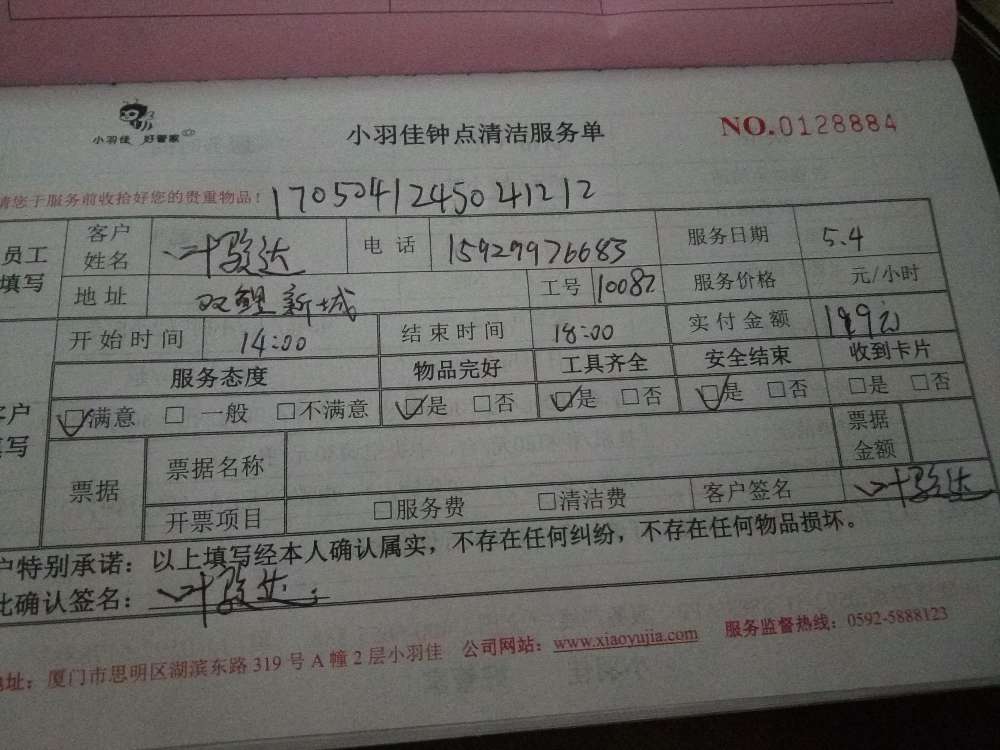 小羽佳 好管家
小羽佳钟点清洁服务单
NO.0128884
请您于服务前收拾好您的贵重物品！ 17050412450041212
员工填写 客户姓名 叶骏达 电话 15929976683 服务日期 5.4
地址 双鲤新城 工号 10082 服务价格 元/小时
开始时间 14:00 结束时间 18:00 实付金额 199元
服务态度 物品完好 工具齐全 安全结束 收到卡片
客户填写 ☑满意 □一般 □不满意 ☑是 □否 ☑是 □否 ☑是 □否 □是 □否
票据 票据名称 票据金额
开票项目 □服务费 □清洁费 客户签名 叶骏达
户特别承诺：以上填写经本人确认属实，不存在任何纠纷，不存在任何物品损坏。
此确认签名： 叶骏达
地址：厦门市思明区湖滨东路319号A幢2层小羽佳 公司网站：www.xiaoyujia.com 服务监督热线：0592-5888123